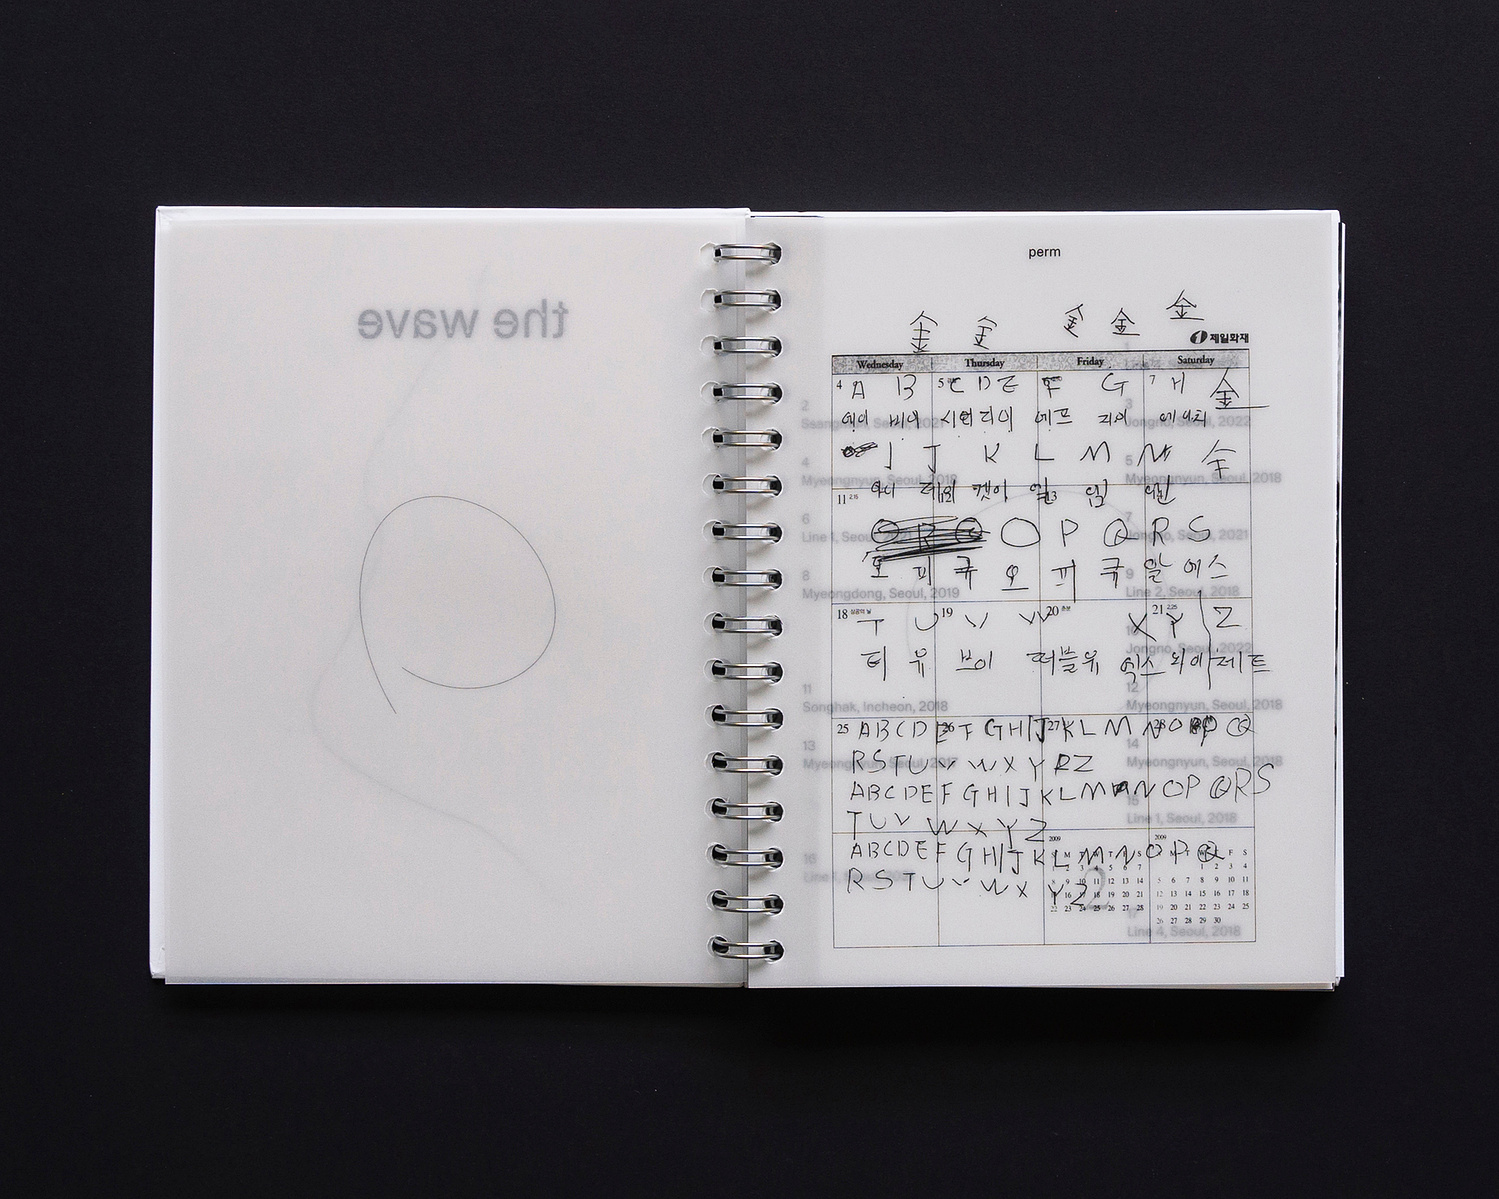 the wave
perm
金 金 金 金 金
제일화재
Wednesday Thursday Friday Saturday
4 A B 5 C D E F G 7 H 金
에이 비이 시이 디이 에프 지이 에이치
2 3
Ssangmun, Seoul, 2021 Jongno, Seoul, 2022
I J K L M N 金
4 5
Myeongnyun, Seoul, 2018 Myeongnyun, Seoul, 2018
11 아이 제이 켓이 엘 엠 엔
6 7
O P Q R S
Line 1, Seoul, 2021 Jongno, Seoul, 2021
오 피 큐 오 피 큐 알 에스
8 9
Myeongdong, Seoul, 2019 Line 2, Seoul, 2018
18 T U 19 V W 20 X 21 Y Z
10
Jongno, Seoul, 2022
티 유 브이 떠블유 익스 와이 제트
11 12
Songhak, Incheon, 2018 Myeongnyun, Seoul, 2018
25 A B C D E 26 F G H I J 27 K L M N 28 O P Q
13 14
R S T U V W X Y Z
Myeongnyun, Seoul, 2017 Myeongnyun, Seoul, 2018
A B C D E F G H I J K L M N O P Q R S
15
Line 1, Seoul, 2018
T U V W X Y Z
2009 2009
A B C D E F G H I J K L M N O P Q
16
R S T U V W X Y Z
1 2 3 4 5 6 7
8 9 10 11 12 13 14
15 16 17 18 19 20 21
22 23 24 25 26 27 28
1 2 3 4
5 6 7 8 9 10 11
12 13 14 15 16 17 18
19 20 21 22 23 24 25
26 27 28 29 30
17
Line 4, Seoul, 2018